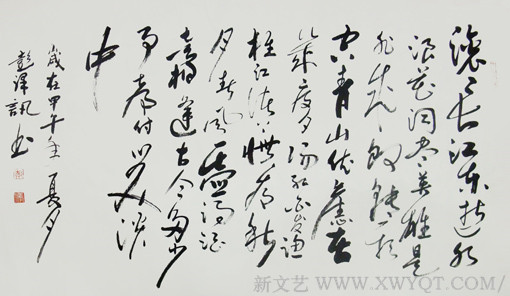 滚滚长江東逝水
浪花淘尽英雄是
非成敗转头
空青山依舊在
几度夕阳红白发渔
樵江渚上惯看秋
月春风一壶浊酒
喜相逢古今多少
事都付笑谈
中
歲在甲午年夏月
彭泽訊书
新文艺 WWW.XWYQT.COM